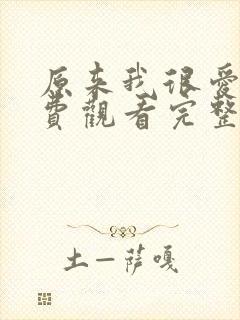 原来我很爱
費觀看完整
土一萨嘎